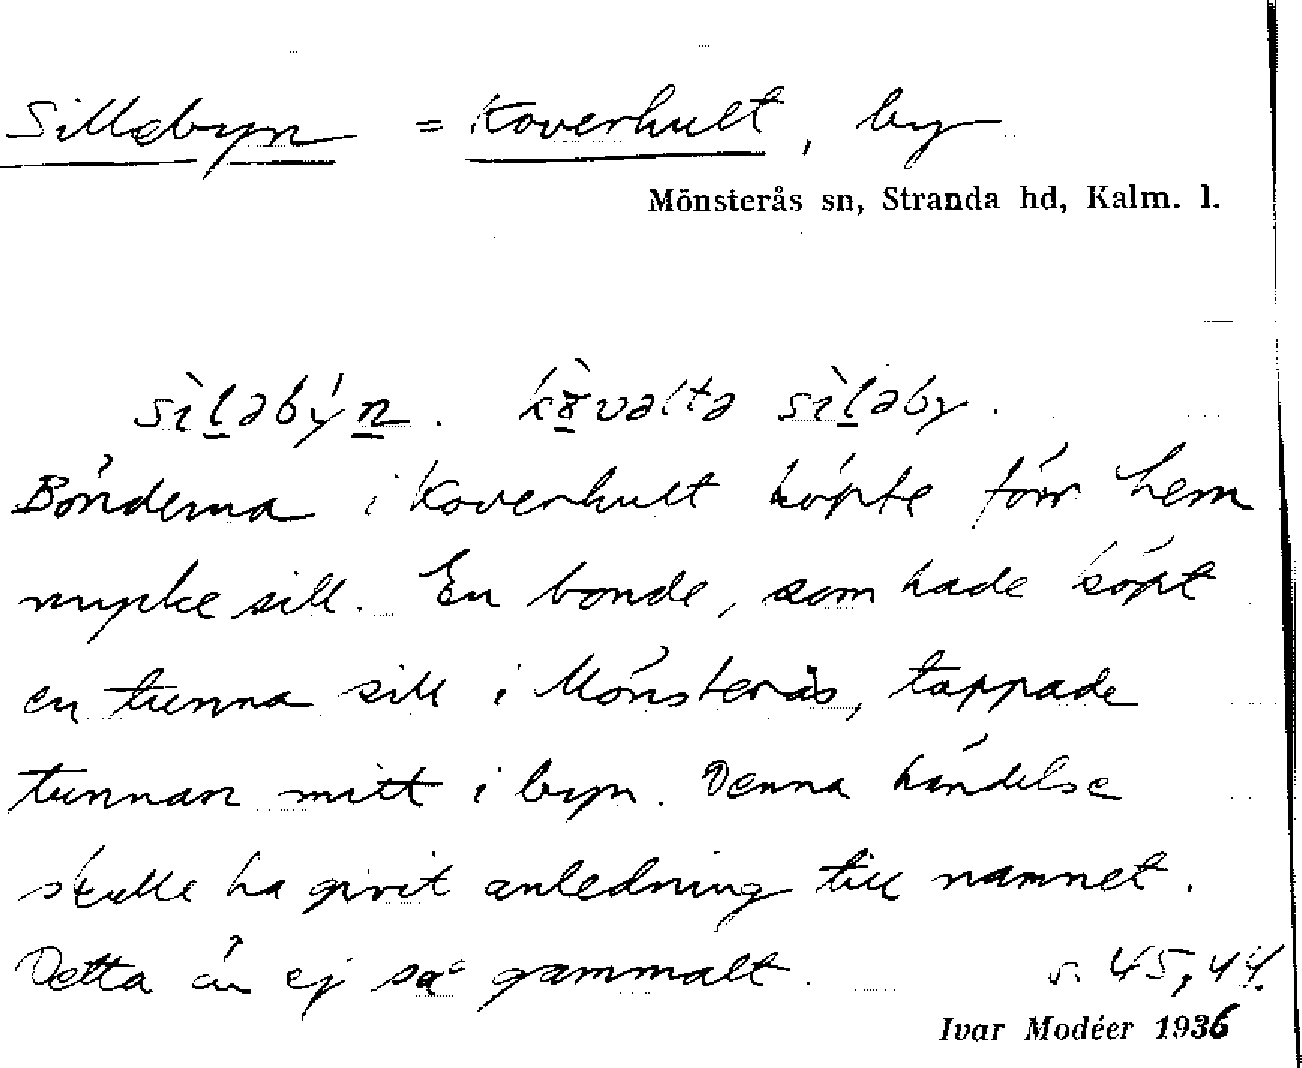 Sillebyn = Koverhult, by
Mönsterås sn, Stranda hd, Kalm. l.
sìləbýn. kòvəltə sìləby.
Bönderna i Koverhult köpte förr hem
mycke sill. En bonde, som hade köpt
en tunna sill i Mönsterås, tappade
tunnan mitt i byn. Denna händelse
skulle ha givit anledning till namnet.
Detta är ej så gammalt. s. 45, 44.
Ivar Modéer 1936